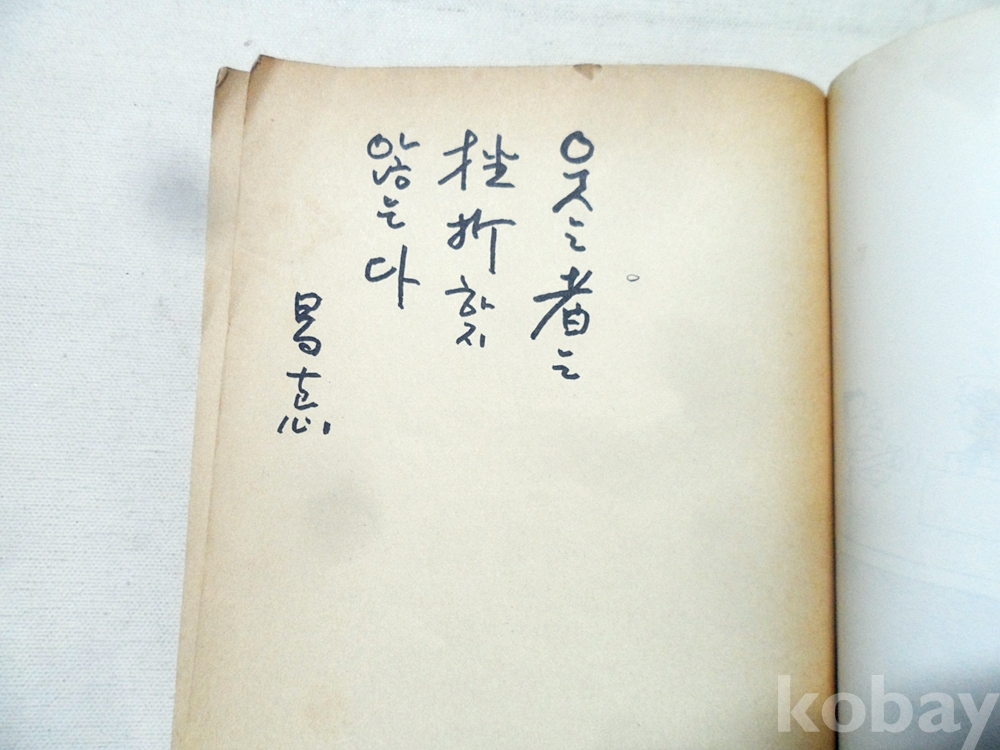 웃는 者는
挫折하지
않는다
昌志
kobay